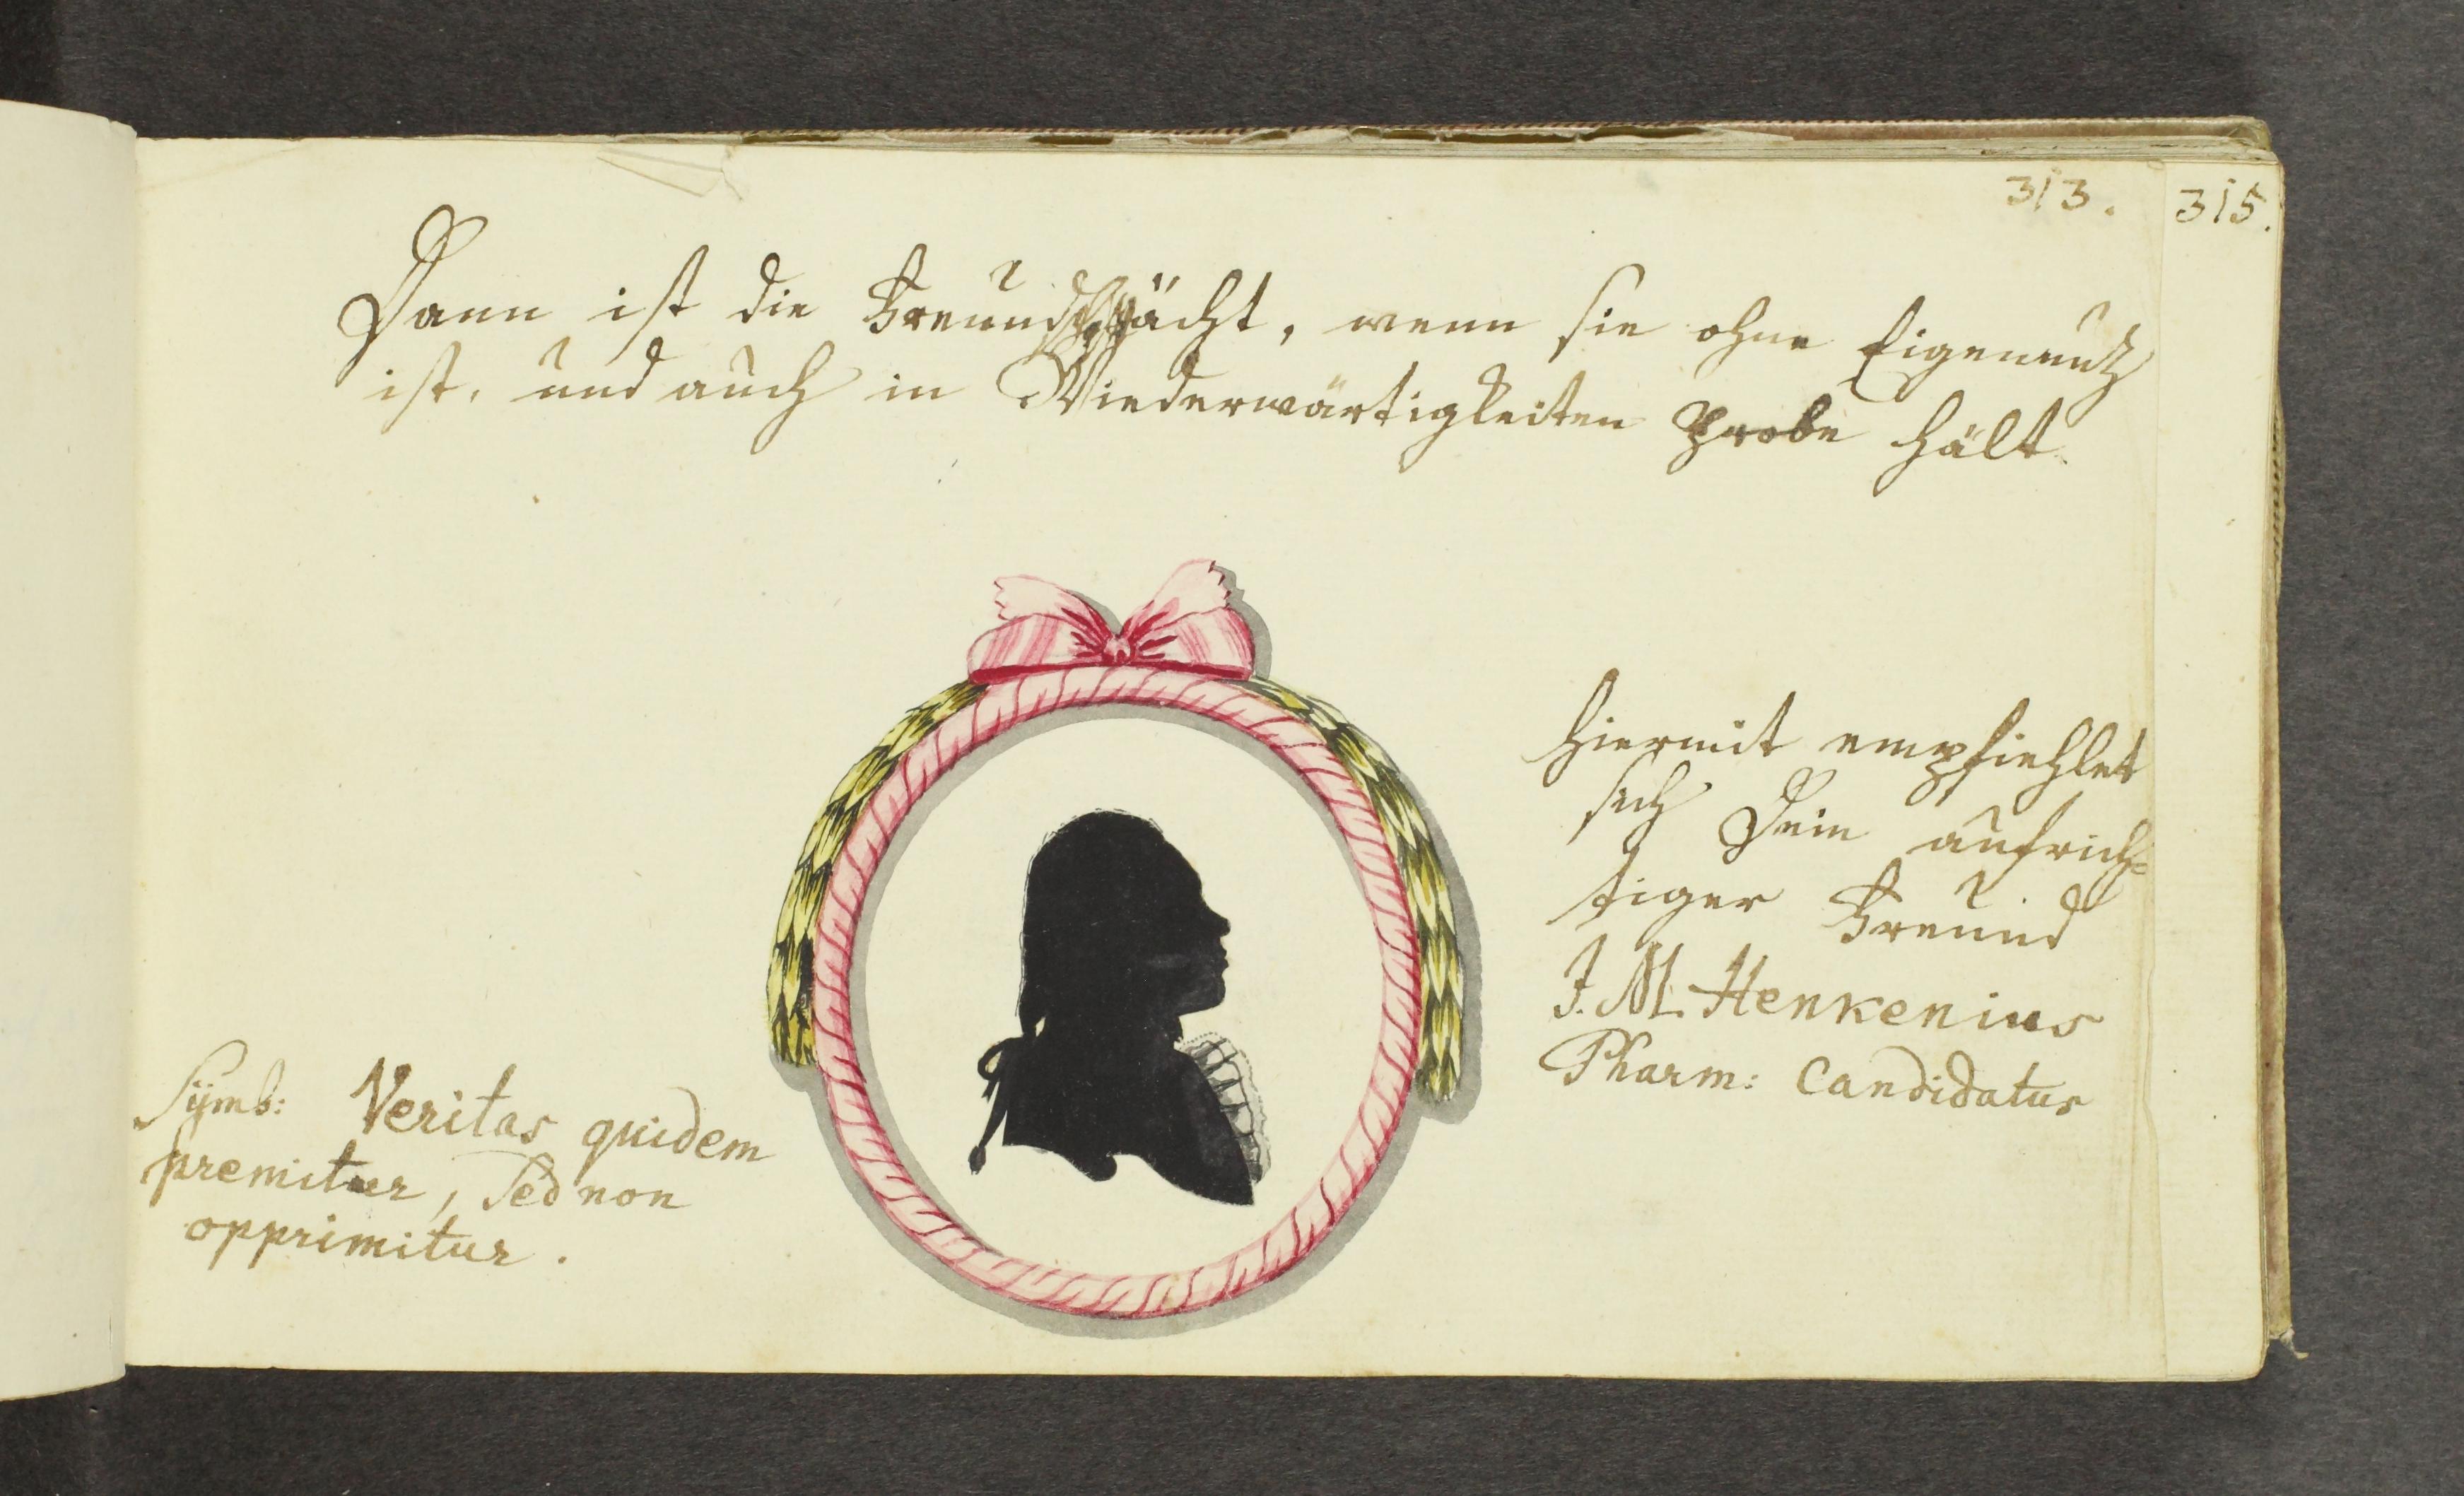 313.
315.
Dann ist die Freundschafft ächt, wenn sie ohne Eigennutz
ist, und auch in Wiederwärtigkeiten Probe hält
Hiermit empfiehlet
sich Dein aufrich=
tiger Freund
J. M. Henkenius
Pharm: Candidatus
Sÿmb: Veritas quidem
premitur, sed non
opprimitur.